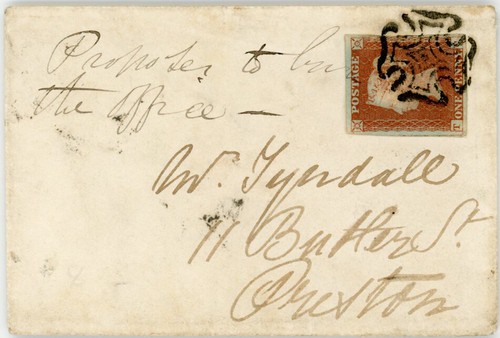 Proposes to
the office —
Mr. Tyndall
11 Butler St.
Preston
POSTAGE
ONE PENNY
T